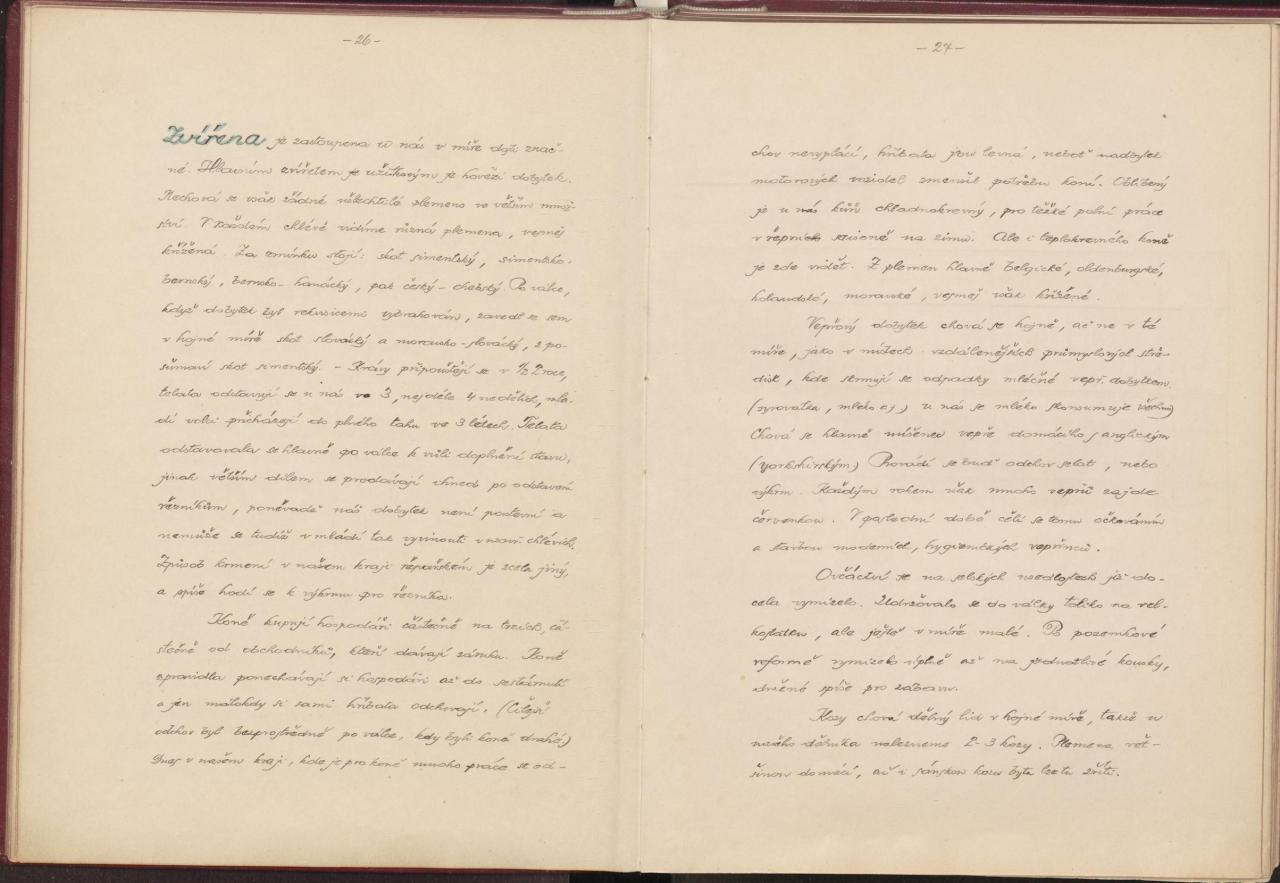 - 26 -
Zvířena je zastoupena u nás v míře dosti znač-
né. Hlavním zvířetem je užitkovým je hovězí dobytek.
Nechová se však žádné ušlechtilé plemeno ve větším množ-
ství. V každém chlévě vidíme různá plemena, vesměs
křížená. Za zmínku stojí: skot simentský, simentsko-
bernský, bernsko-hanácký, pak český-chebský. Po válce,
když dobytek byl rekvisicemi vybrakován, zavedl se sem
v hojné míře skot slovácký a moravsko-slovácký, z po-
šumaví skot simentský. - Krávy připouštějí se v 1/2 2 roce,
telata odstavují se u nás ve 3, nejdéle 4 nedělích, mla-
dí volci přicházejí do plného tahu ve 3 létech. Telata
odstavovala se hlavně po válce k vůli doplnění stavu,
jinak větším dílem se prodávají ihned po odstavení
řezníkům, poněvadž náš dobytek není pastevní a
nemůže se tudíž v mládí tak vyvinouti v uzavř. chlévích.
Způsob krmení v našem kraji řepařském je zcela jiný,
a spíše hodí se k výkrmu pro řezníka.
Koně kupují hospodáři částečně na trzích, čá-
stečně od obchodníků, kteří dávají záruku. Koně
zpravidla ponechávají si hospodáři až do sestárnutí
a jen málokdy si sami hříbata odchovají. (Čilejší
odchov byl bezprostředně po válce, kdy byli koně drahé)
Dnes v našem kraji, kde je pro koně mnoho práce se od-
- 27 -
chov nevyplácí, hříbata jsou levná, neboť nadbytek
motorových vozidel zmenšil potřebu koní. Oblíbený
je u nás kůň chladnokrevný, pro těžké polní práce
v řepních na zimu. Ale i teplokrevného koně
je zde vidět. Z plemen hlavně belgické, oldenburgské,
holandské, moravské, vesměs však křížené.
Vepřový dobytek chová se hojně, ač ne v té
míře, jako v místech vzdálenějších průmyslových stře-
disk, kde krmují se odpadky mléčné vepř. dobytkem
(syrovátka, mléko aj.) u nás se mléko skonsumuje všechno
Chová se hlavně míšenec vepře domácího s anglickým
(yorkshirským) Provádí se buď odchov selat, nebo
výkrm. Každým rokem však mnoho vepřů zajde
červenkou. V poslední době čelí se tomu očkováním
a stavbou moderních, hygienických vepřinců.
Ovčáctví se na selských usedlostech již do-
cela vymizelo. Udržovalo se do války toliko na vel-
kostatku, ale ještě v míře malé. Po pozemkové
reformě vymizelo úplně až na jednotlivé kousky,
držené spíše pro zábavu.
Kozy chová dělný lid v hojné míře, takže u
našeho dělníka nalezneme 2-3 kozy. Plemena vět-
šinou domácí, ač i sánskou kozu bylo lze tu zříti.